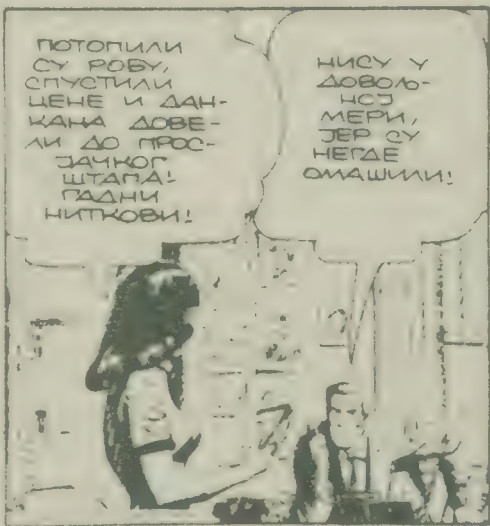 ПОТОПИЛИ
СУ РОБУ,
СПУСТИЛИ
ЦЕНЕ И ДАН-
КАНА ДОВЕ-
ЛИ ДО ПРОС-
ЈАЧКОГ
ШТАПА!
ГАДНИ
НИТКОВИ!
НИСУ У
ДОВОЉ-
НОЈ
МЕРИ,
ЈЕР СУ
НЕГДЕ
ОМАШИЛИ!